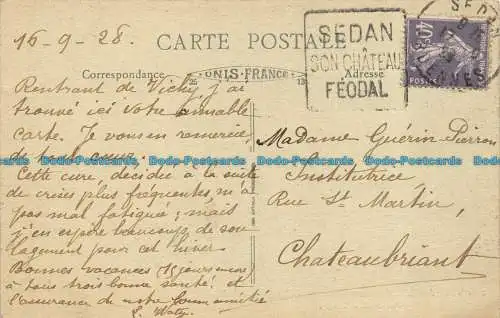 16-9-28.
CARTE POSTALE
Correspondance
UNIS-FRANCE
Adresse
SEDAN
SON CHÂTEAU
FÉODAL
40c
POSTES
Rentrant de Vichy, j'ai
trouvé ici votre aimable
carte. Je vous en remercie
de tout cœur.
Cette cure, décidée à la suite
de crises plus fréquentes, m'a
pas mal fatiguée; mais
j'en espère beaucoup de sou
lagement pour cet hiver
Bonnes vacances
à tous trois bonne santé! et
l'assurance de notre bonne amitié
Madame Guérin-Pierron
Institutrice
Rue St Martin,
Chateaubriant
Bodo-Postcards Bodo-Postcards Bodo-Postcards Bodo-Postcards